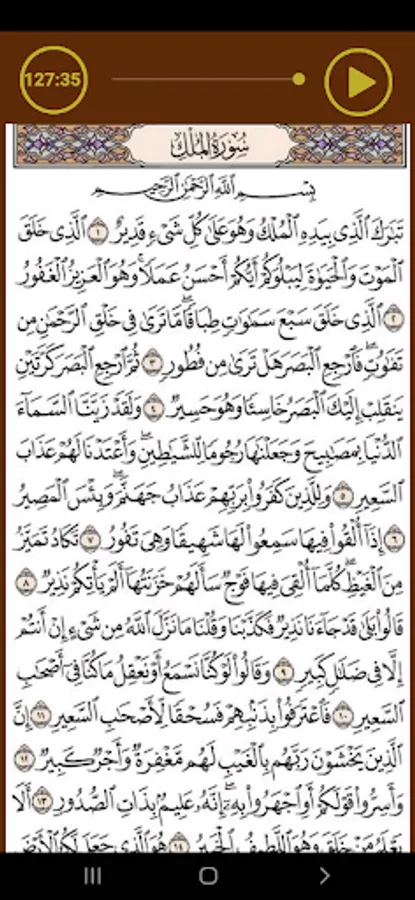 127:35
سُورَةُ المُلْكِ
بِسْمِ اللَّهِ الرَّحْمَٰنِ الرَّحِيمِ
تَبَارَكَ الَّذِي بِيَدِهِ الْمُلْكُ وَهُوَ عَلَىٰ كُلِّ شَيْءٍ قَدِيرٌ ١ الَّذِي خَلَقَ
الْمَوْتَ وَالْحَيَوٰةَ لِيَبْلُوَكُمْ أَيُّكُمْ أَحْسَنُ عَمَلًا وَهُوَ الْعَزِيزُ الْغَفُورُ
٢ الَّذِي خَلَقَ سَبْعَ سَمَوَاتٍ طِبَاقًا مَّا تَرَىٰ فِي خَلْقِ الرَّحْمَٰنِ مِن
تَفَاوُتٍ فَارْجِعِ الْبَصَرَ هَلْ تَرَىٰ مِن فُطُورٍ ٣ ثُمَّ ارْجِعِ الْبَصَرَ كَرَّتَيْنِ
يَنقَلِبْ إِلَيْكَ الْبَصَرُ خَاسِئًا وَهُوَ حَسِيرٌ ٤ وَلَقَدْ زَيَّنَّا السَّمَاءَ
الدُّنْيَا بِمَصَابِيحَ وَجَعَلْنَاهَا رُجُومًا لِّلشَّيَاطِينِ وَأَعْتَدْنَا لَهُمْ عَذَابَ
السَّعِيرِ ٥ وَلِلَّذِينَ كَفَرُوا بِرَبِّهِمْ عَذَابُ جَهَنَّمَ وَبِئْسَ الْمَصِيرُ
٦ إِذَا أُلْقُوا فِيهَا سَمِعُوا لَهَا شَهِيقًا وَهِيَ تَفُورُ ٧ تَكَادُ تَمَيَّزُ
مِنَ الْغَيْظِ كُلَّمَا أُلْقِيَ فِيهَا فَوْجٌ سَأَلَهُمْ خَزَنَتُهَا أَلَمْ يَأْتِكُمْ نَذِيرٌ ٨
قَالُوا بَلَىٰ قَدْ جَاءَنَا نَذِيرٌ فَكَذَّبْنَا وَقُلْنَا مَا نَزَّلَ اللَّهُ مِن شَيْءٍ إِنْ أَنتُمْ
إِلَّا فِي ضَلَالٍ كَبِيرٍ ٩ وَقَالُوا لَوْ كُنَّا نَسْمَعُ أَوْ نَعْقِلُ مَا كُنَّا فِي أَصْحَابِ
السَّعِيرِ ١٠ فَاعْتَرَفُوا بِذَنبِهِمْ فَسُحْقًا لِّأَصْحَابِ السَّعِيرِ ١١ إِنَّ
الَّذِينَ يَخْشَوْنَ رَبَّهُم بِالْغَيْبِ لَهُم مَّغْفِرَةٌ وَأَجْرٌ كَبِيرٌ ١٢
وَأَسِرُّوا قَوْلَكُمْ أَوِ اجْهَرُوا بِهِ إِنَّهُ عَلِيمٌ بِذَاتِ الصُّدُورِ ١٣ أَلَا
يَعْلَمُ مَنْ خَلَقَ وَهُوَ اللَّطِيفُ الْخَبِيرُ ١٤ هُوَ الَّذِي جَعَلَ لَكُمُ الْأَرْضَ